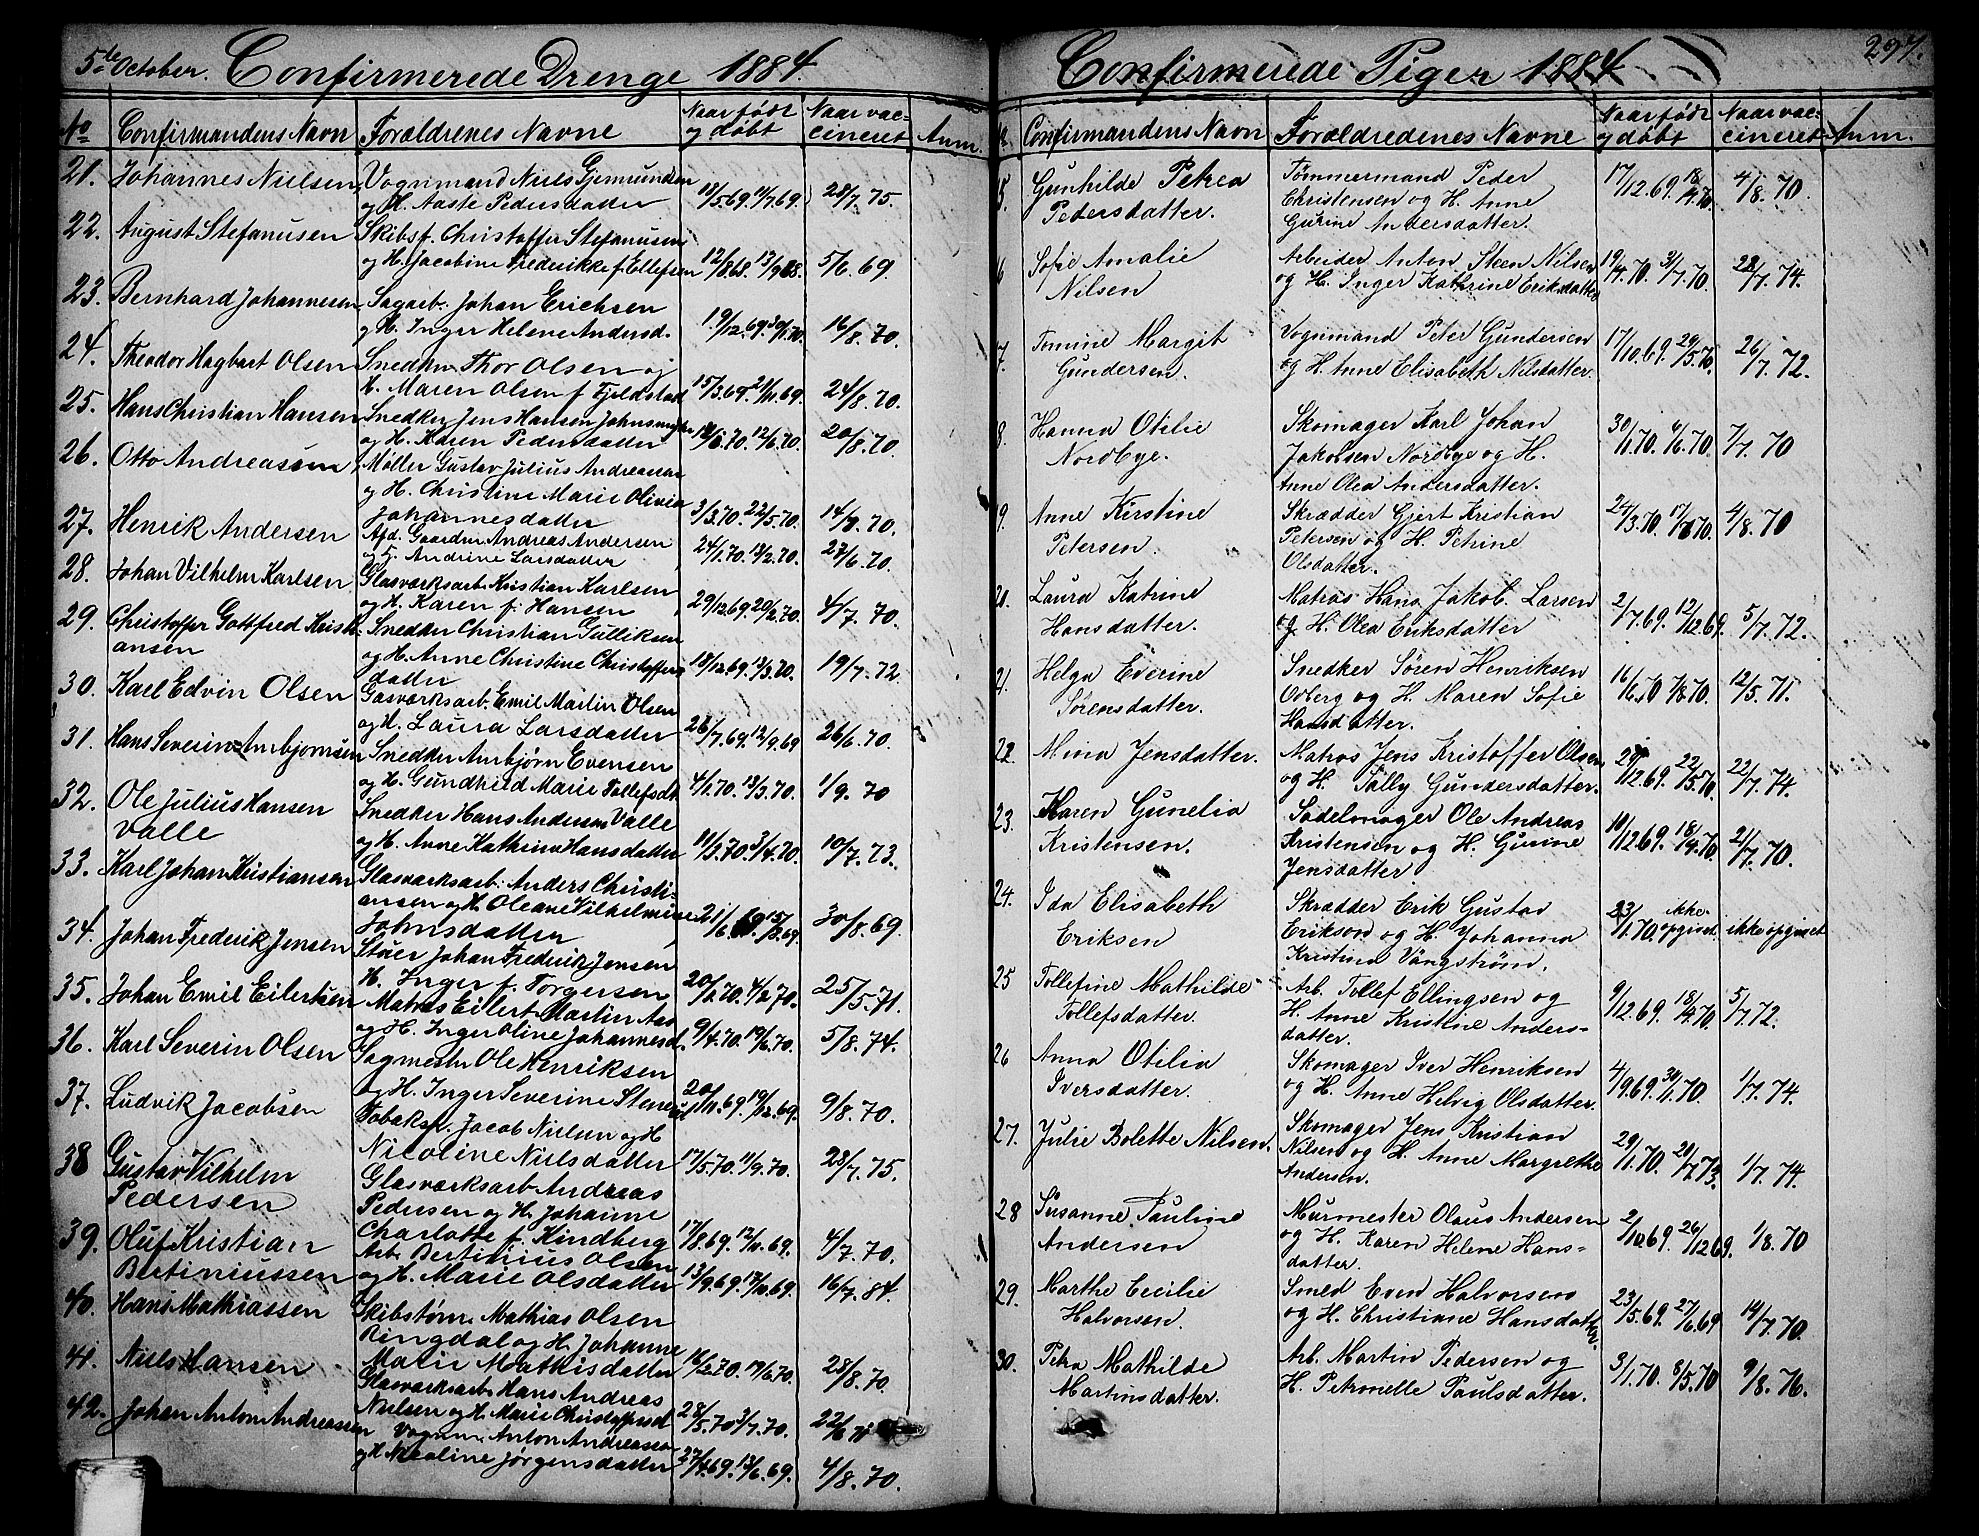 5te October. Confirmerede Drenge 1884.
No Confirmandens Navn Forældrenes Navne Naar født og døbt Naar vaccineret Anm.
21. Johannes Nielsen Vognmand Niels Gjermundsen
og H. Aaste Pedersdatter 18/5.69. 11/7.69. 28/7. 75.
22. August Stefanusen Skibsf. Christoffer Stefanusen
og H. Jacobine Frederikke f. Ellefsen 12/8.68. 13/9.68. 5/6. 69.
23. Bernhard Johannesen Sagarb. Johan Erichsen
og H. Inger Helene Andersd. 19/12.69. 30/1.70. 16/8. 70.
24. Theodor Hagbart Olsen Snedker Thor Olsen og
H. Maren Olsen f. Fjeldstad 15/3.69. 21/11.69. 24/8. 70.
25. Hans Christian Hansen Snedker Jens Hansen
og H. Karen Pedersdatter 12/6.70. 20/8. 70.
26. Otto Andreassen Møller Gustav Julius Andreassen
og H. Christine Marie Olivia
Johannesdatter 3/3.70. 22/5.70. 14/9. 70.
27. Henrik Andersen Afd. Gaardm. Andreas Andersen
og Andrine Larsdatter 24/1.70. 13/2.70. 27/6. 70.
28. Johan Vilhelm Karlsen Glasværksarb. Kristian Karlsen
og H. Karen f. Hansen 29/12.69. 20/2.70. 4/7. 70.
29. Christoffer Gottfred Kristi-
ansen Snedker Christian Gulliksen
og H. Anne Christine Christoffers-
datter 18/12.69. 13/3.70. 19/7. 72
30. Karl Edvin Olsen Gasværksarb. Emil Martin Olsen
og H. Laura Larsdatter 26/7.69. 12/9.69 26/6. 70.
31. Hans Severin Arnbjornsen Snedker Arnbjørn Evensen
og H. Gundhild Marie Tollefsdt. 4/1.70. 13/3.70. 1/9. 70
32. Ole Julius Hansen
Valle Snedker Hans Andersen Valle
og H. Anne Kathrine Hansdatter 11/2.70. 3/4.70. 10/7. 73.
33. Karl Johan Kristiansen Glasværksarb. Anders Christi-
ansen og H. Oleane Vilhelmine
Johnsdatter 21/6.69. 15/8.69. 30/8. 69.
34. Johan Frederik Jensen Stuer Johan Frederik Jensen
H. Inger f. Torgersen 20/1.70. 4/2.70. 25/5. 71.
35. Johan Emil Eilertsen Matros Eilert Martin Aas
og H. Inger Oline Johannesd. 9/4.70. 19/6.70. 5/8. 74.
36. Karl Severin Olsen Sagmester Ole Henriksen
og H. Inger Severine Stenersd. 20/11.69. 19/12.69. 9/8. 70.
37. Ludvik Jacobsen Tobaksp. Jacob Nielsen og H
Nicoline Nielsdatter 17/5.70. 11/9.70. 28/7. 75.
38 Gustav Vilhelm
Pedersen Glasværksarb. Andreas
Pedersen og H. Johanne
Charlotte f. Kindberg 17/8.69. 12/11.69. 4/7. 70.
39. Oluf Kristian
Bertiniussen Arb. Bertinius Olsen
og H. Marie Olsdatter 13/9.69. 17/10.69. 16/7. 84.
40. Hans Mathiassen Skibstøm. Mathias Olsen
Ringdal og H. Johanne
Marie Mathisdatter 16/2.70. 19/6.70. 28/8. 70.
41. Niels Hansen Glasværksarb. Hans Andreas
Nielsen og H. Marie Christoffersd. 28/5.70. 3/7.70. 22/6 71
42. Johan Anton Andreassen Vognm. Anton Andreassen
og H. Nicoline Jørgensdatter 27/4.69. 13/6.69. 4/8. 70.
Confirmerede Piger 1884 297.
Confirmandens Navn Foraldredenes Navne Naar født og døbt Naar vaccineret Anm.
15. Gunhilde Petrea
Pedersdatter. Tømmermand Peder
Christensen og H. Anne
Gurine Andersdatter. 17/12.69. 18/4.70. 4/8. 70.
16 Sofie Amalie
Nilsen Arbeider Anton Steen Nilsen
og H. Inger Kathrine Eriksdatter 19/4.70. 31/7.70. 22/7. 74.
17. Tomine Margit
Gundersen. Vognmand Peter Gundersen
og H. Anne Elisabeth Nilsdatter. 17/10.69. 29/5.70. 26/7. 72.
18. Hanna Otilie
Nordbye. Skomager Karl Johan
Jakobsen Nordbye og H.
Anne Olea Andersdatter. 30/1.70. 6/6.70. 7/7. 70
19. Anne Kirstine
Petersen. Skrædder Gjert Kristian
Petersen og H. Petrine
Olsdatter. 24/3.70. 17/7.70. 4/8. 70
20. Laura Katrine
Hansdatter. Matros Hans Jakob. Larsen
og H. Olea Eriksdatter 2/7.69. 12/12.69. 5/7. 72.
21. Helga Everine
Sørensdatter. Snedker Søren Henriksen
Orberg og H. Maren Sofie
Hansdatter. 16/6.70 7/8.70. 12/5. 71.
22. Mina Jensdatter. Matros Jens Kristoffer Olsen
og H. Tally Gundersdatter. 29/12.69. 22/5.70. 22/7. 74.
23. Karen Gunelia
Kristensen. Sadelmager Ole Andreas
Kristensen og H. Gurine
Jensdatter 10/12.69. 18/4.70. 21/7. 70.
24. Ida Elisabeth
Eriksen Skrædder Erik Gustav
Erikson og H. Johanna
Kristina Vångstrøm. 23/1.70. ikke opgivet. ikke opgivet
25 Tollefine Mathilde
Tollefsdatter. Arb. Tollef Ellingsen og
H. Anne Kristine Anders-
datter. 9/12.69. 18/4.70. 5/7. 72.
26 Anna Otilia
Iversdatter. Skomager Iver Henriksen
og H. Anne Helvig Olsdatter. 4/9.69. 30/1.70. 1/7. 74.
27. Julie Bolette Nilsen. Skomager Jens Kristian
Nilsen og H. Anne Margrethe
Andersen. 29/1.70. 20/7.73. 1/7. 74.
28 Susanne Pauline
Andersen Murmester Olaus Andersen
og H. Karen Helene Hans-
datter. 2/10.69. 26/12.69. 1/8. 70
29. Marthe Cecilie
Halvorsen. Smed Even Halvorsen
og H. Christiane Hansdatter. 23/5.69. 27/6.69 14/7. 70.
30. Petra Mathilde
Martinsdatter. Arb. Martin Pedersen og
H. Petronelle Paulsdatter. 3/1.70. 8/5.70 9/8. 76.